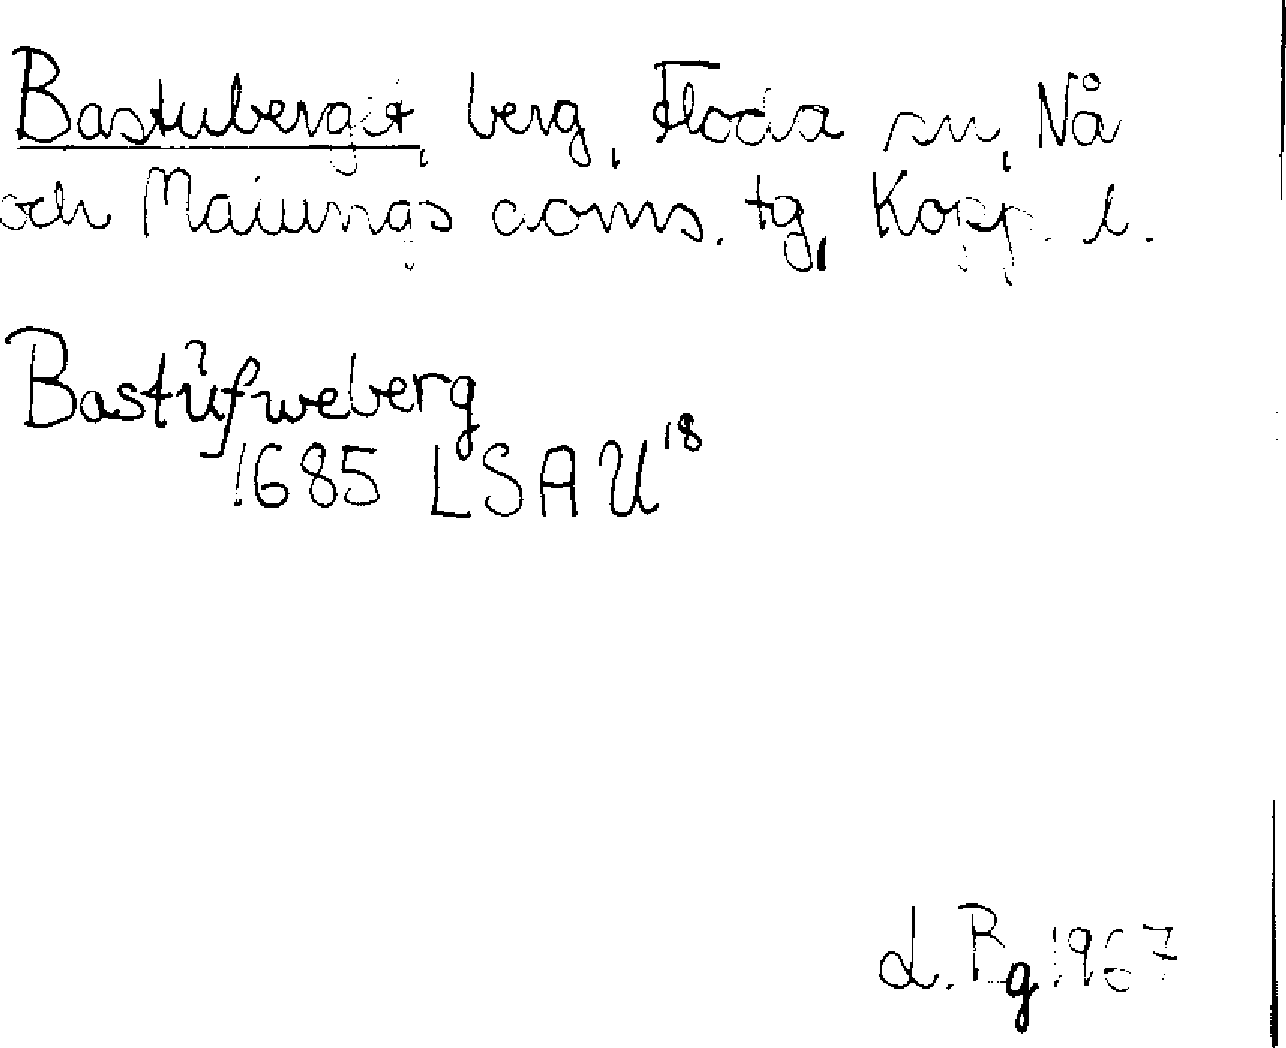 Bastuberget, berg, Floda sn, Nå
och Malungs doms. tg, Kopp. l.
Bastůfweberg
1685 LSA U¹⁸
L. Rg 1967